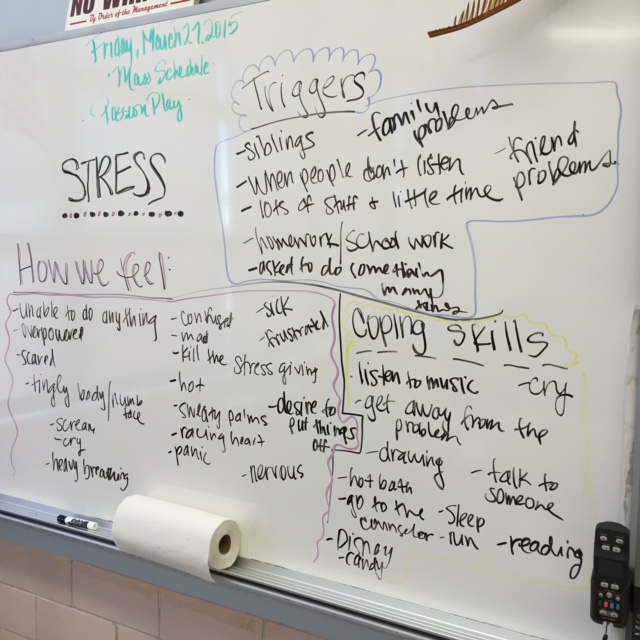 By Order of the Management
Friday, March 27, 2015
· Mass Schedule
· Passion Play
STRESS
Triggers
-siblings
-family problems
-When people don't listen
-friend problems
- lots of stuff & little time
-homework/school work
-asked to do something many times
How we feel:
-unable to do anything
-overpowered
-scared
-tingly body/numb face
-scream
-cry
-heavy breathing
-confused
-mad
-kill the stress giving
-hot
-sweaty palms
-racing heart
-panic
-sick
-frustrated
-desire to put things off
-nervous
Coping Skills
-listen to music
-cry
-get away from the problem
-drawing
-talk to someone
-hot bath
-go to the counselor
-sleep
-run
-reading
-Disney
-candy